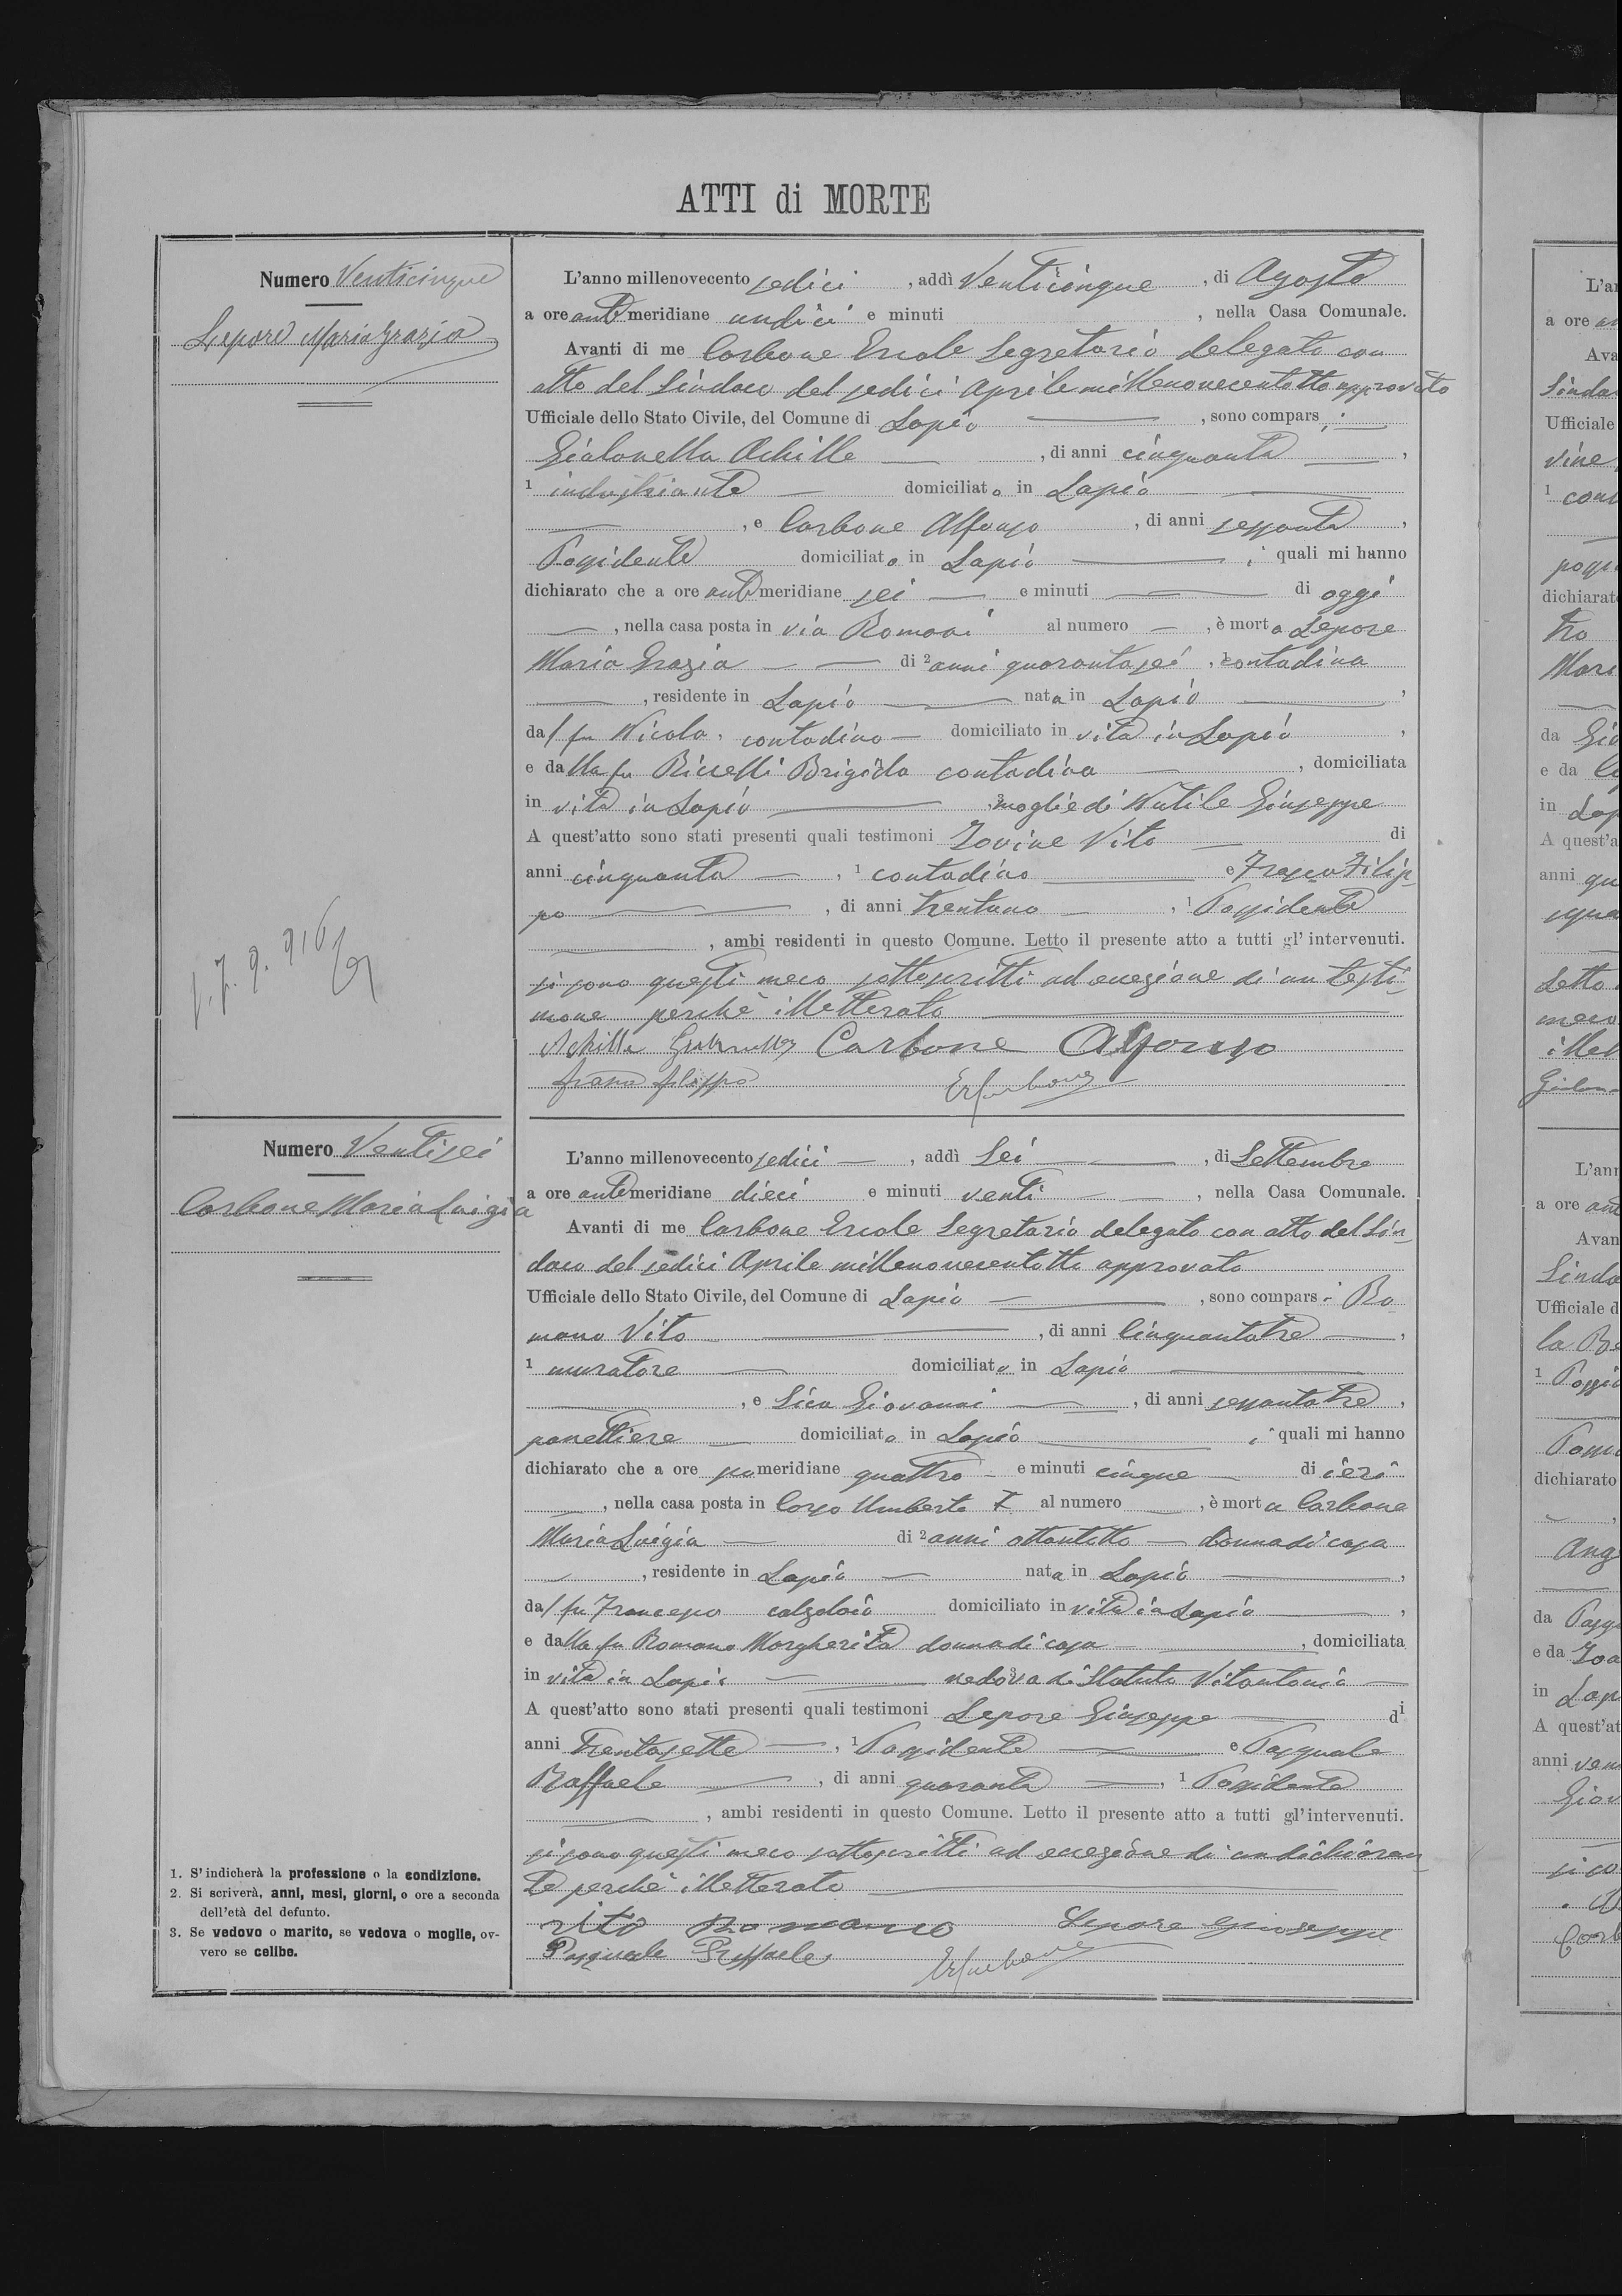 ATTI di MORTE
Numero Venticinque
Lepore Maria Grazia
L'anno millenovecento sedici, addì Venticinque, di Agosto
a ore antimeridiane undici e minuti , nella Casa Comunale.
Avanti di me Carbone Ercole Segretario delegato con
atto del Sindaco del sedici Aprile millenovecentotto approvato
Ufficiale dello Stato Civile, del Comune di Lapio, sono comparsi
Gialonella Achille, di anni cinquanta,
1 industriante domiciliato in Lapio
, e Carbone Alfonso, di anni sessanta,
Possidente domiciliato in Lapio, i quali mi hanno
dichiarato che a ore antimeridiane sei e minuti di oggi
, nella casa posta in via Romani al numero , è morta Lepore
Maria Grazia di 2 anni quarantasei, contadina
, residente in Lapio nata in Lapio,
dal fu Nicola, contadino domiciliato in vita in Lapio,
e dalla fu Brigida contadina, domiciliata
in vita in Lapio 3 moglie di Nutile Giuseppe
A quest'atto sono stati presenti quali testimoni Iovine Vito di
anni cinquanta, 1 contadino e Filip-
po, di anni trentuno, 1 Possidente
, ambi residenti in questo Comune. Letto il presente atto a tutti gl'intervenuti.
si sono questi meco sottoscritti ad eccezione di un testi-
mone perchè illetterato
Achille Carbone Alfonso
filippo
Numero Ventisei
Carbone Maria Luigia
L'anno millenovecento sedici, addì Sei, di Settembre
a ore antimeridiane dieci e minuti venti, nella Casa Comunale.
Avanti di me Carbone Ercole Segretario delegato con atto del Sin-
daco del sedici Aprile millenovecentotto approvato
Ufficiale dello Stato Civile, del Comune di Lapio, sono comparsi Ro
mano Vito, di anni Cinquantatre,
1 muratore domiciliato in Lapio
, e Sica Giovanni, di anni sessantatre,
panettiere domiciliato in Lapio, i quali mi hanno
dichiarato che a ore pomeridiane quattro e minuti cinque di ieri
, nella casa posta in Corso Umberto I al numero , è morta Carbone
Maria Luigia di 2 anni ottantotto donna di casa
, residente in Lapio nata in Lapio,
dal fu Francesco calzolaio domiciliato in vita in Lapio,
e dalla fu Romano Margherita donna di casa, domiciliata
in vita in Lapio 3 vedova di Statuto Vitantonio
A quest'atto sono stati presenti quali testimoni Lepore Giuseppe di
anni trentasette, 1 Possidente e Pasquale
Raffaele, di anni quaranta, 1 Possidente
, ambi residenti in questo Comune. Letto il presente atto a tutti gl'intervenuti.
si sono questi meco sottoscritti ad eccezione di un dichiaran-
te perchè illetterato
Vito Romano Lepore Giuseppe
Pasquale Raffaele
1. S'indicherà la professione o la condizione.
2. Si scriverà, anni, mesi, giorni, o ore a seconda
dell'età del defunto.
3. Se vedovo o marito, se vedova o moglie, ov-
vero se celibe.